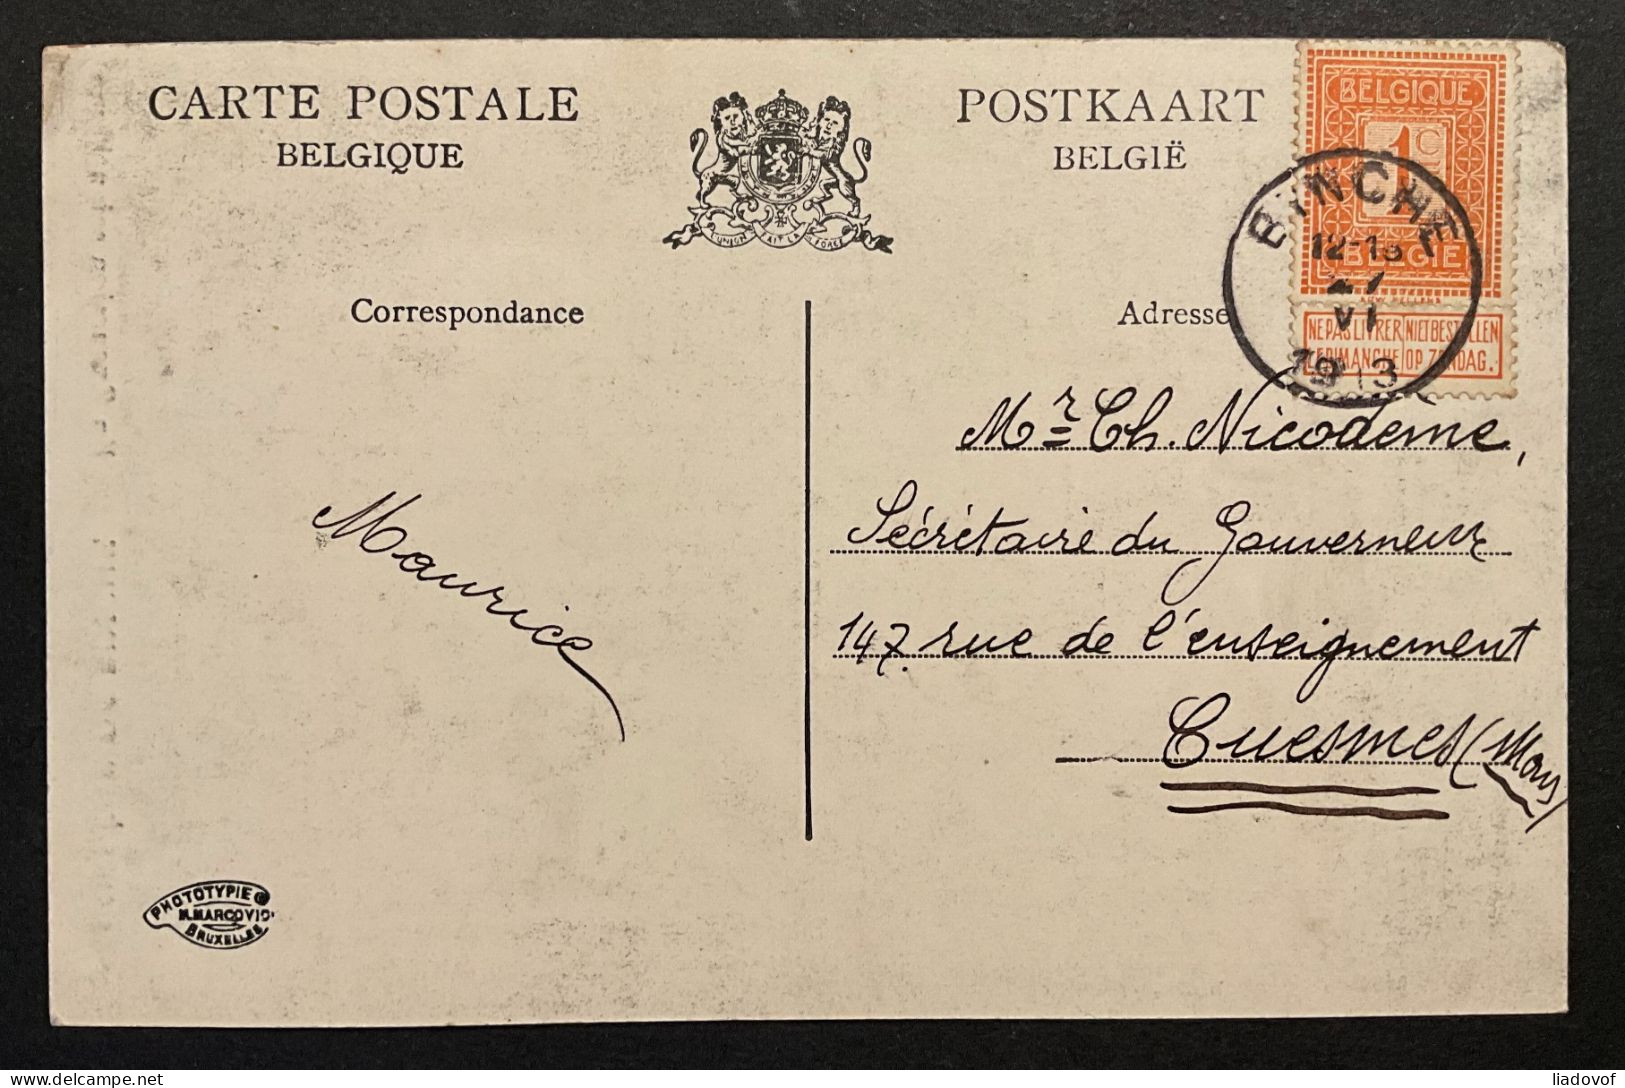 CARTE POSTALE
BELGIQUE
POSTKAART
BELGIË
L'UNION FAIT LA FORCE
BELGIQUE
1C
BELGIË
NE PAS LIVRER LE DIMANCHE
NIET BESTELLEN OP ZONDAG.
BINCHE
12-13
VI
1913
Correspondance
Adresse
Maurice
Mr Ch. Nicodème,
Sécrétaire du Gouverneur
147 rue de l'enseignement
Cuesmes (Mons)
PHOTOTYPIE
M.MARCOVICI
BRUXELLES
liadovof
delcampe.net